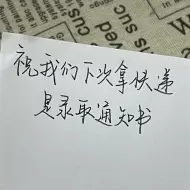 祝我们下次拿快递
是录取通知书